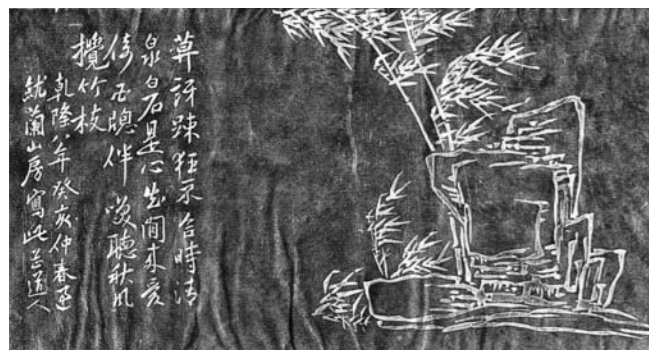 莫訝踈狂不合時清
泉白石是心知閒來愛
倚西牕伴咲聽秋風
攪竹枝
乾隆八年癸亥仲春
蘭山房寫此道人